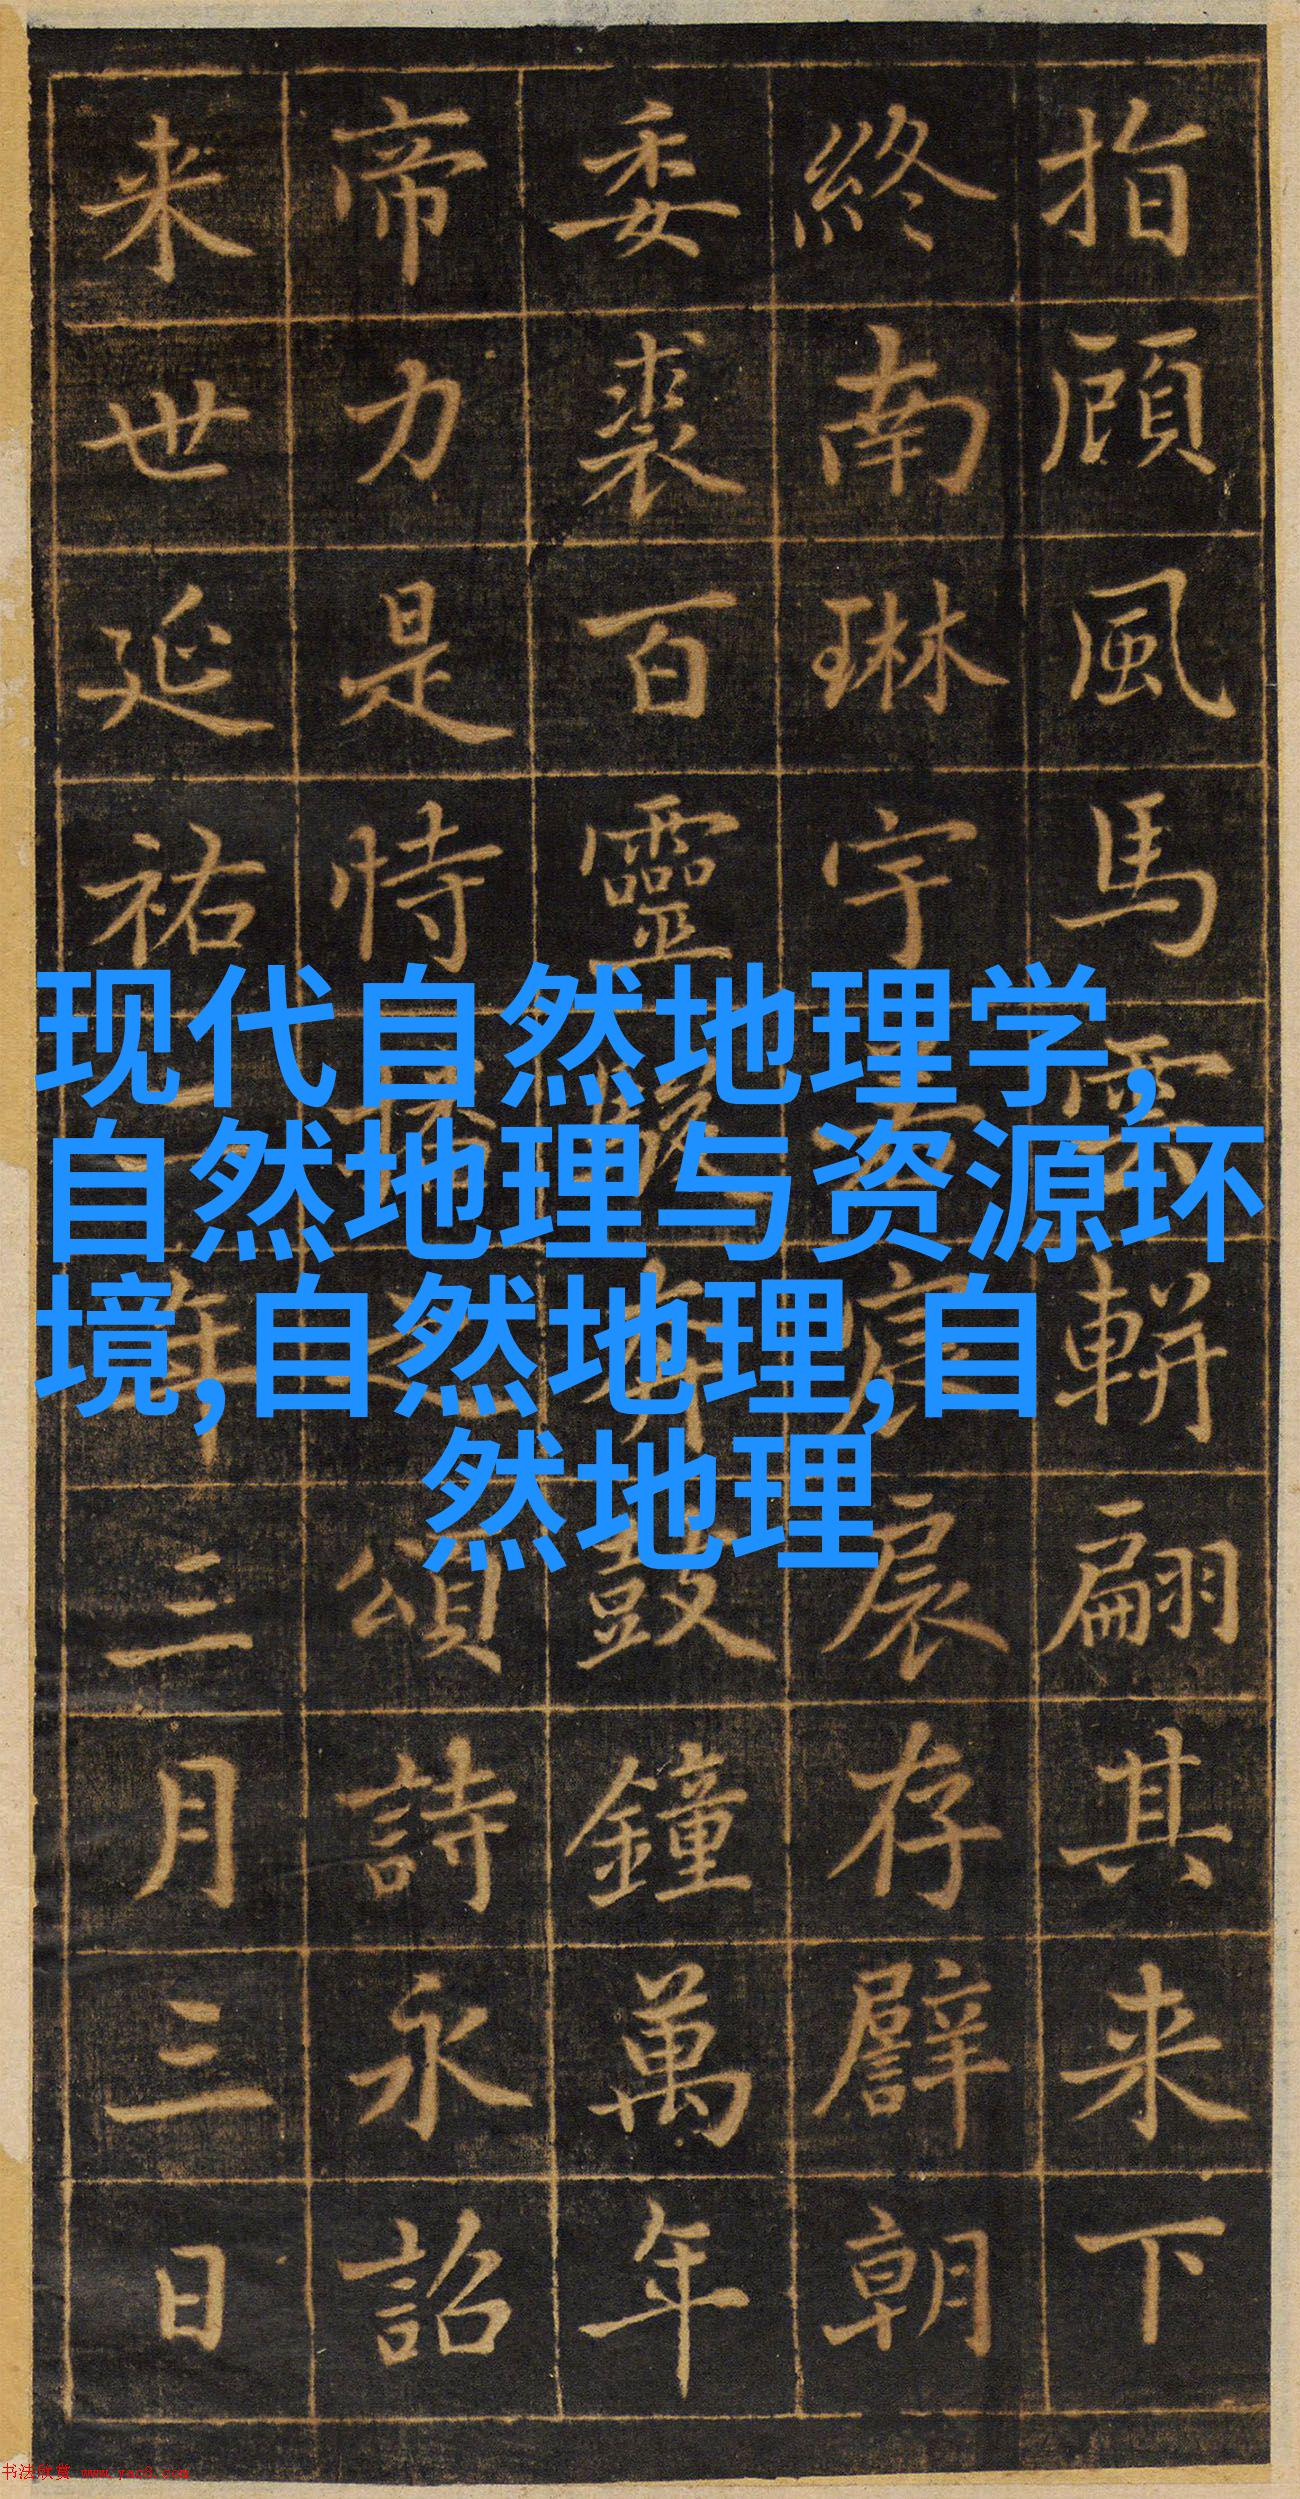 指顧風馬雲軿翩其来下
終南琳宇扆存譬朝
委裘百靈駿奔鼓鐘萬年
帝力是恃播之頌詩永詔
来世延祐二年三月三日
现代自然地理学,
自然地理与资源环
境,自然地理,自
然地理
书法欣赏 www.yac8.com